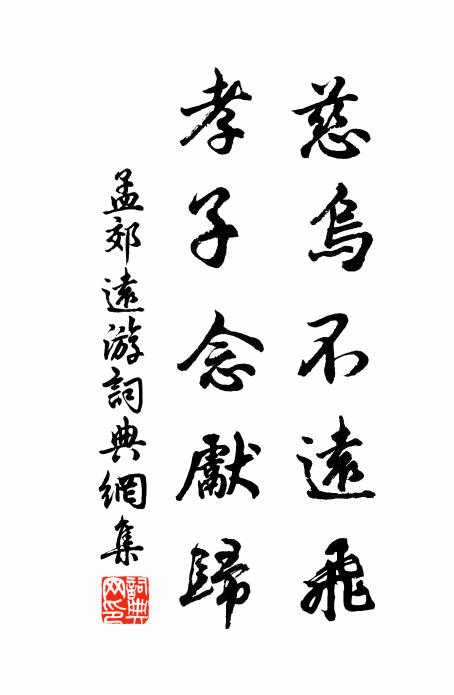 慈烏不遠飛
孝子念獻歸
孟郊遠游詞典網集
詞典網印